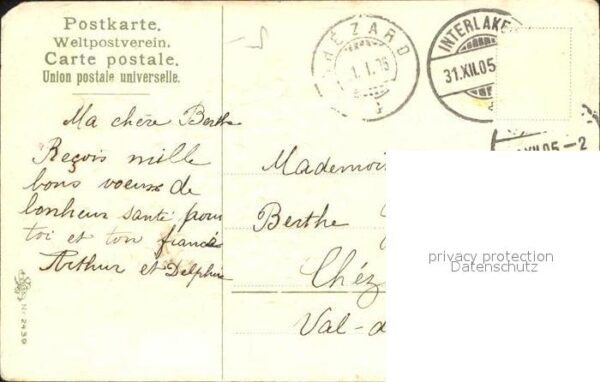 Postkarte.
Weltpostverein.
Carte postale.
Union postale universelle.
Ma chère Berthe
Reçois mille
bons voeux de
bonheur santé pour
toi et ton fiancé
Arthur et Delphine
Nr. 2439
CHÉZARD
1.I.06
INTERLAKEN
31.XII.05
XII.05-2
Mademoi
Berthe
Chéz
Val-d
privacy protection
Datenschutz